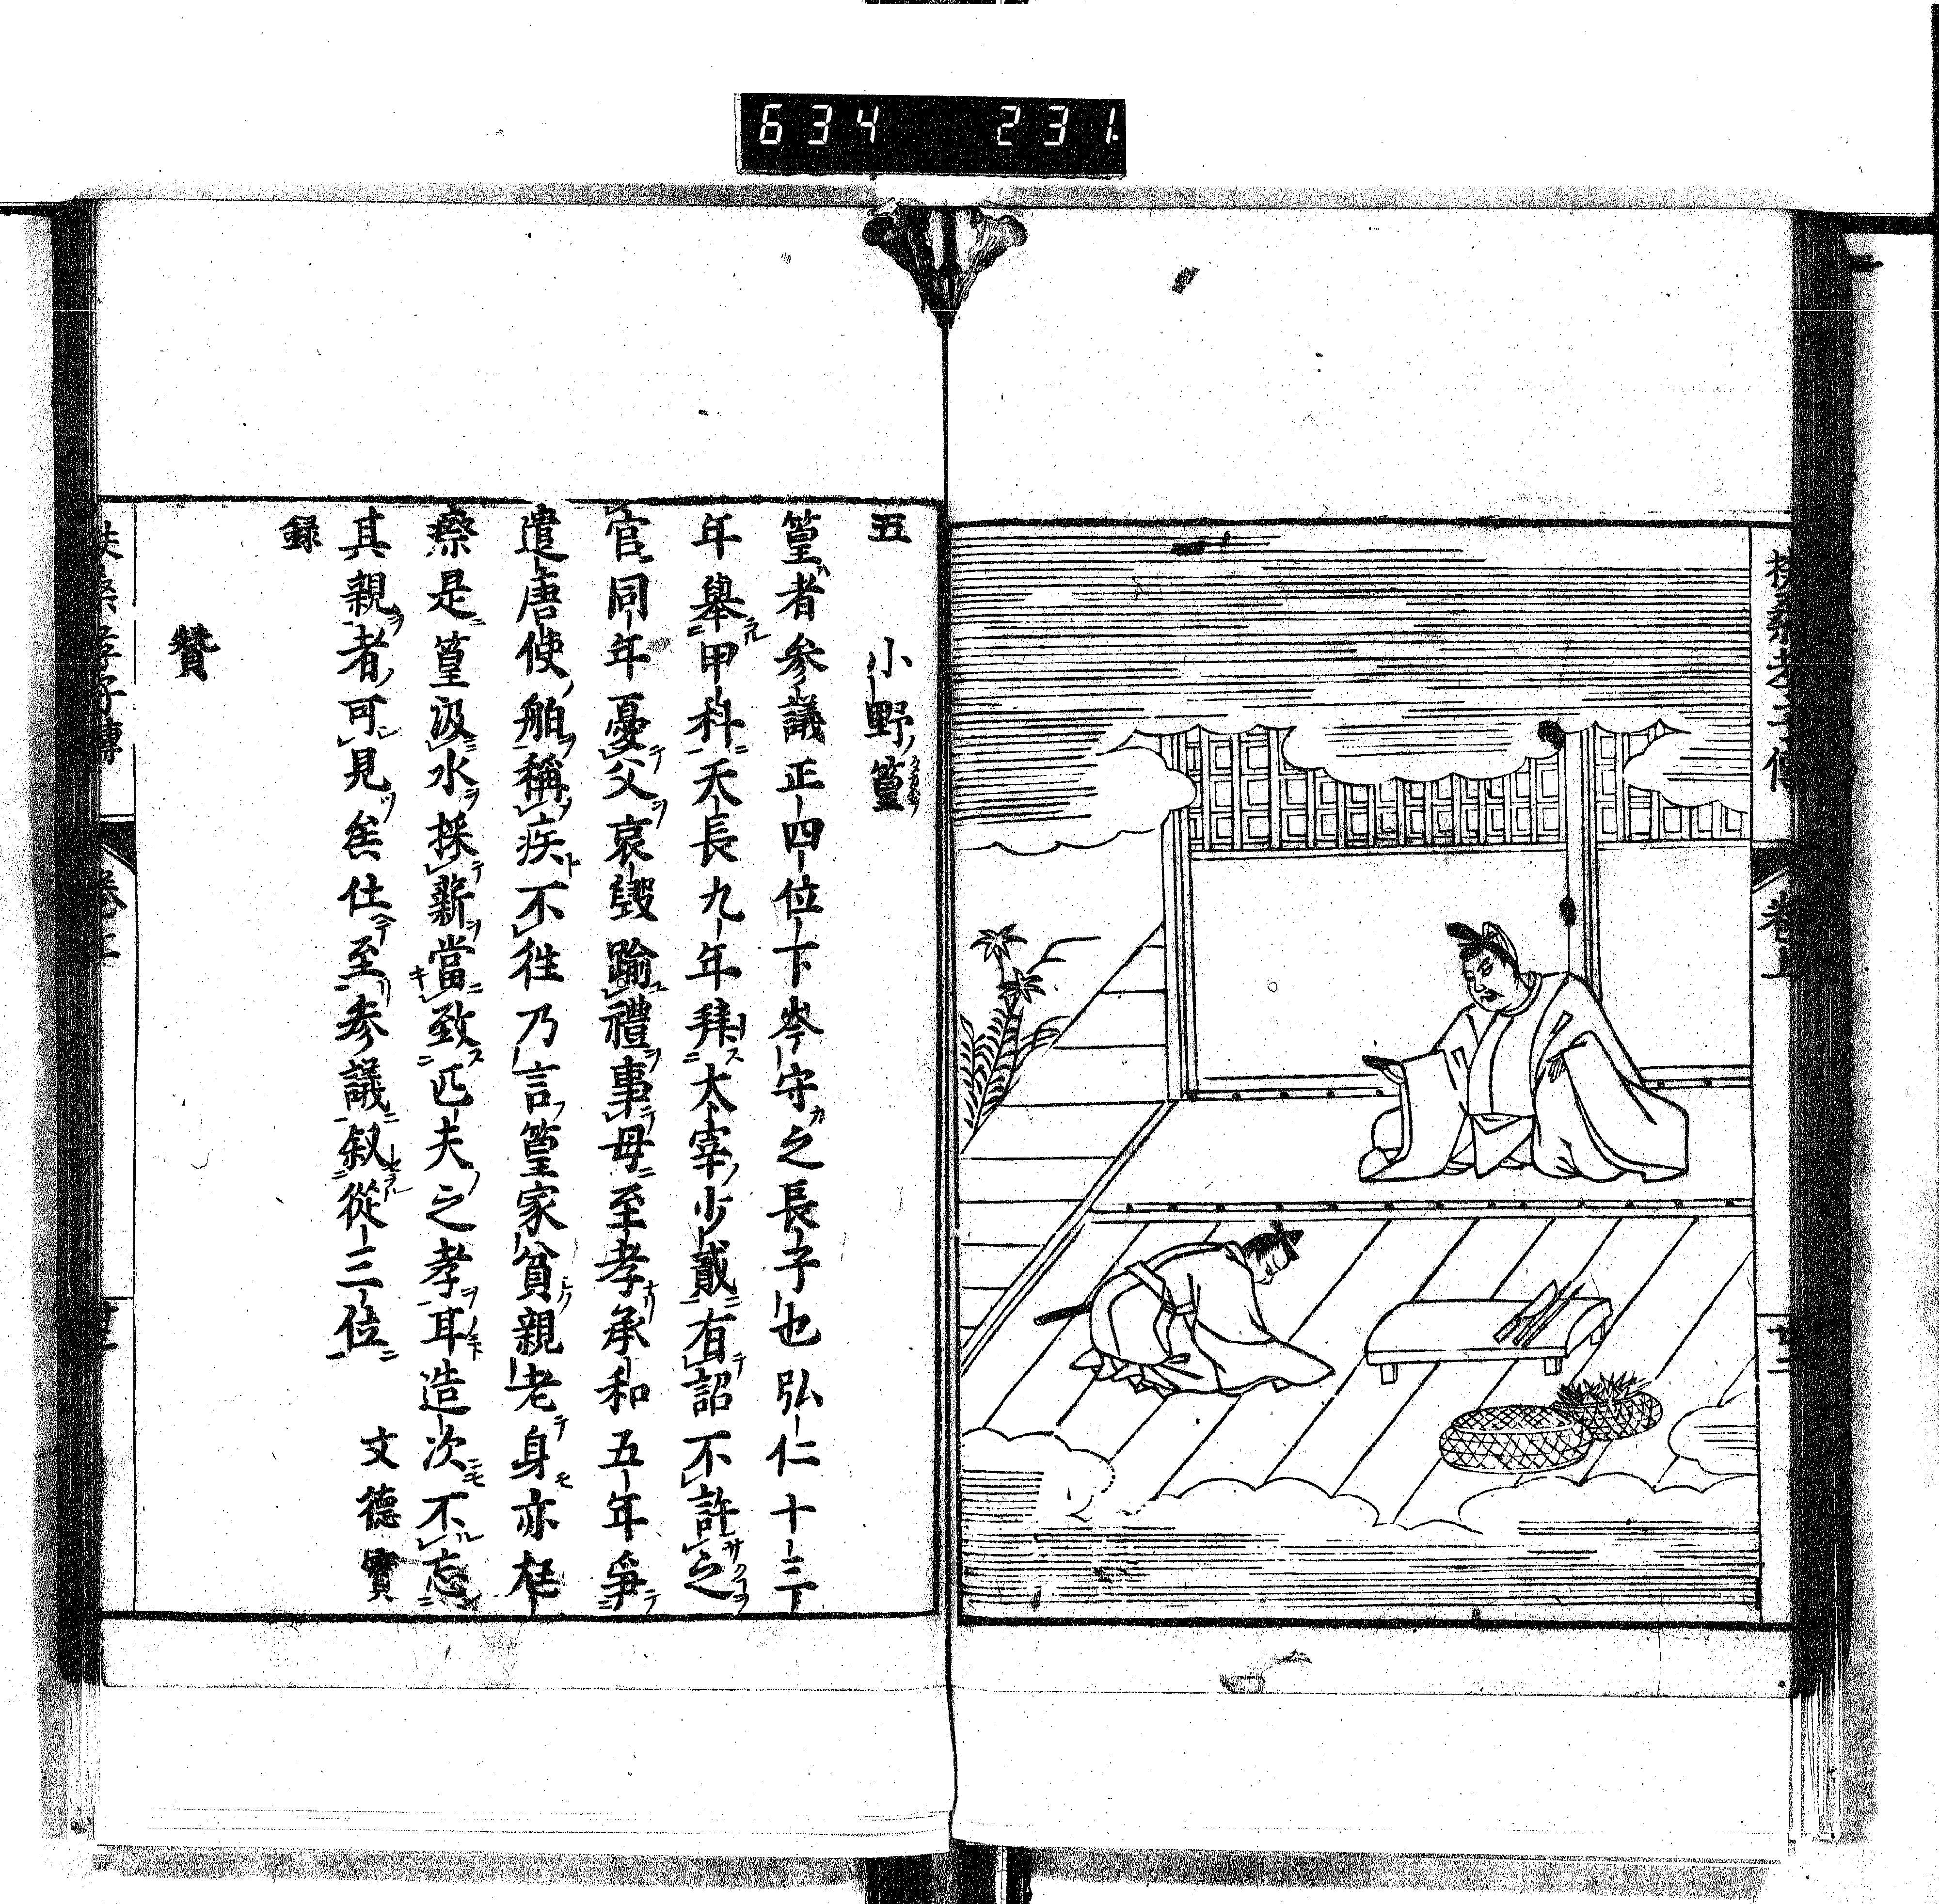 634 231
卷上
廿二
五　小野篁
篁者参議正四位下岑守之長子也弘仁十三
年舉甲科天長九年拜太宰少貳有詔不許之
官同年憂父哀毀踰禮事母至孝承和五年爭
遣唐使舶稱疾不往乃言篁家貧親老身亦尩
瘵是篁汲水採薪當致匹夫之孝耳造次不忘
其親者可見矣仕至参議叙從三位　文德實
録
贊
扶桑孝子傳